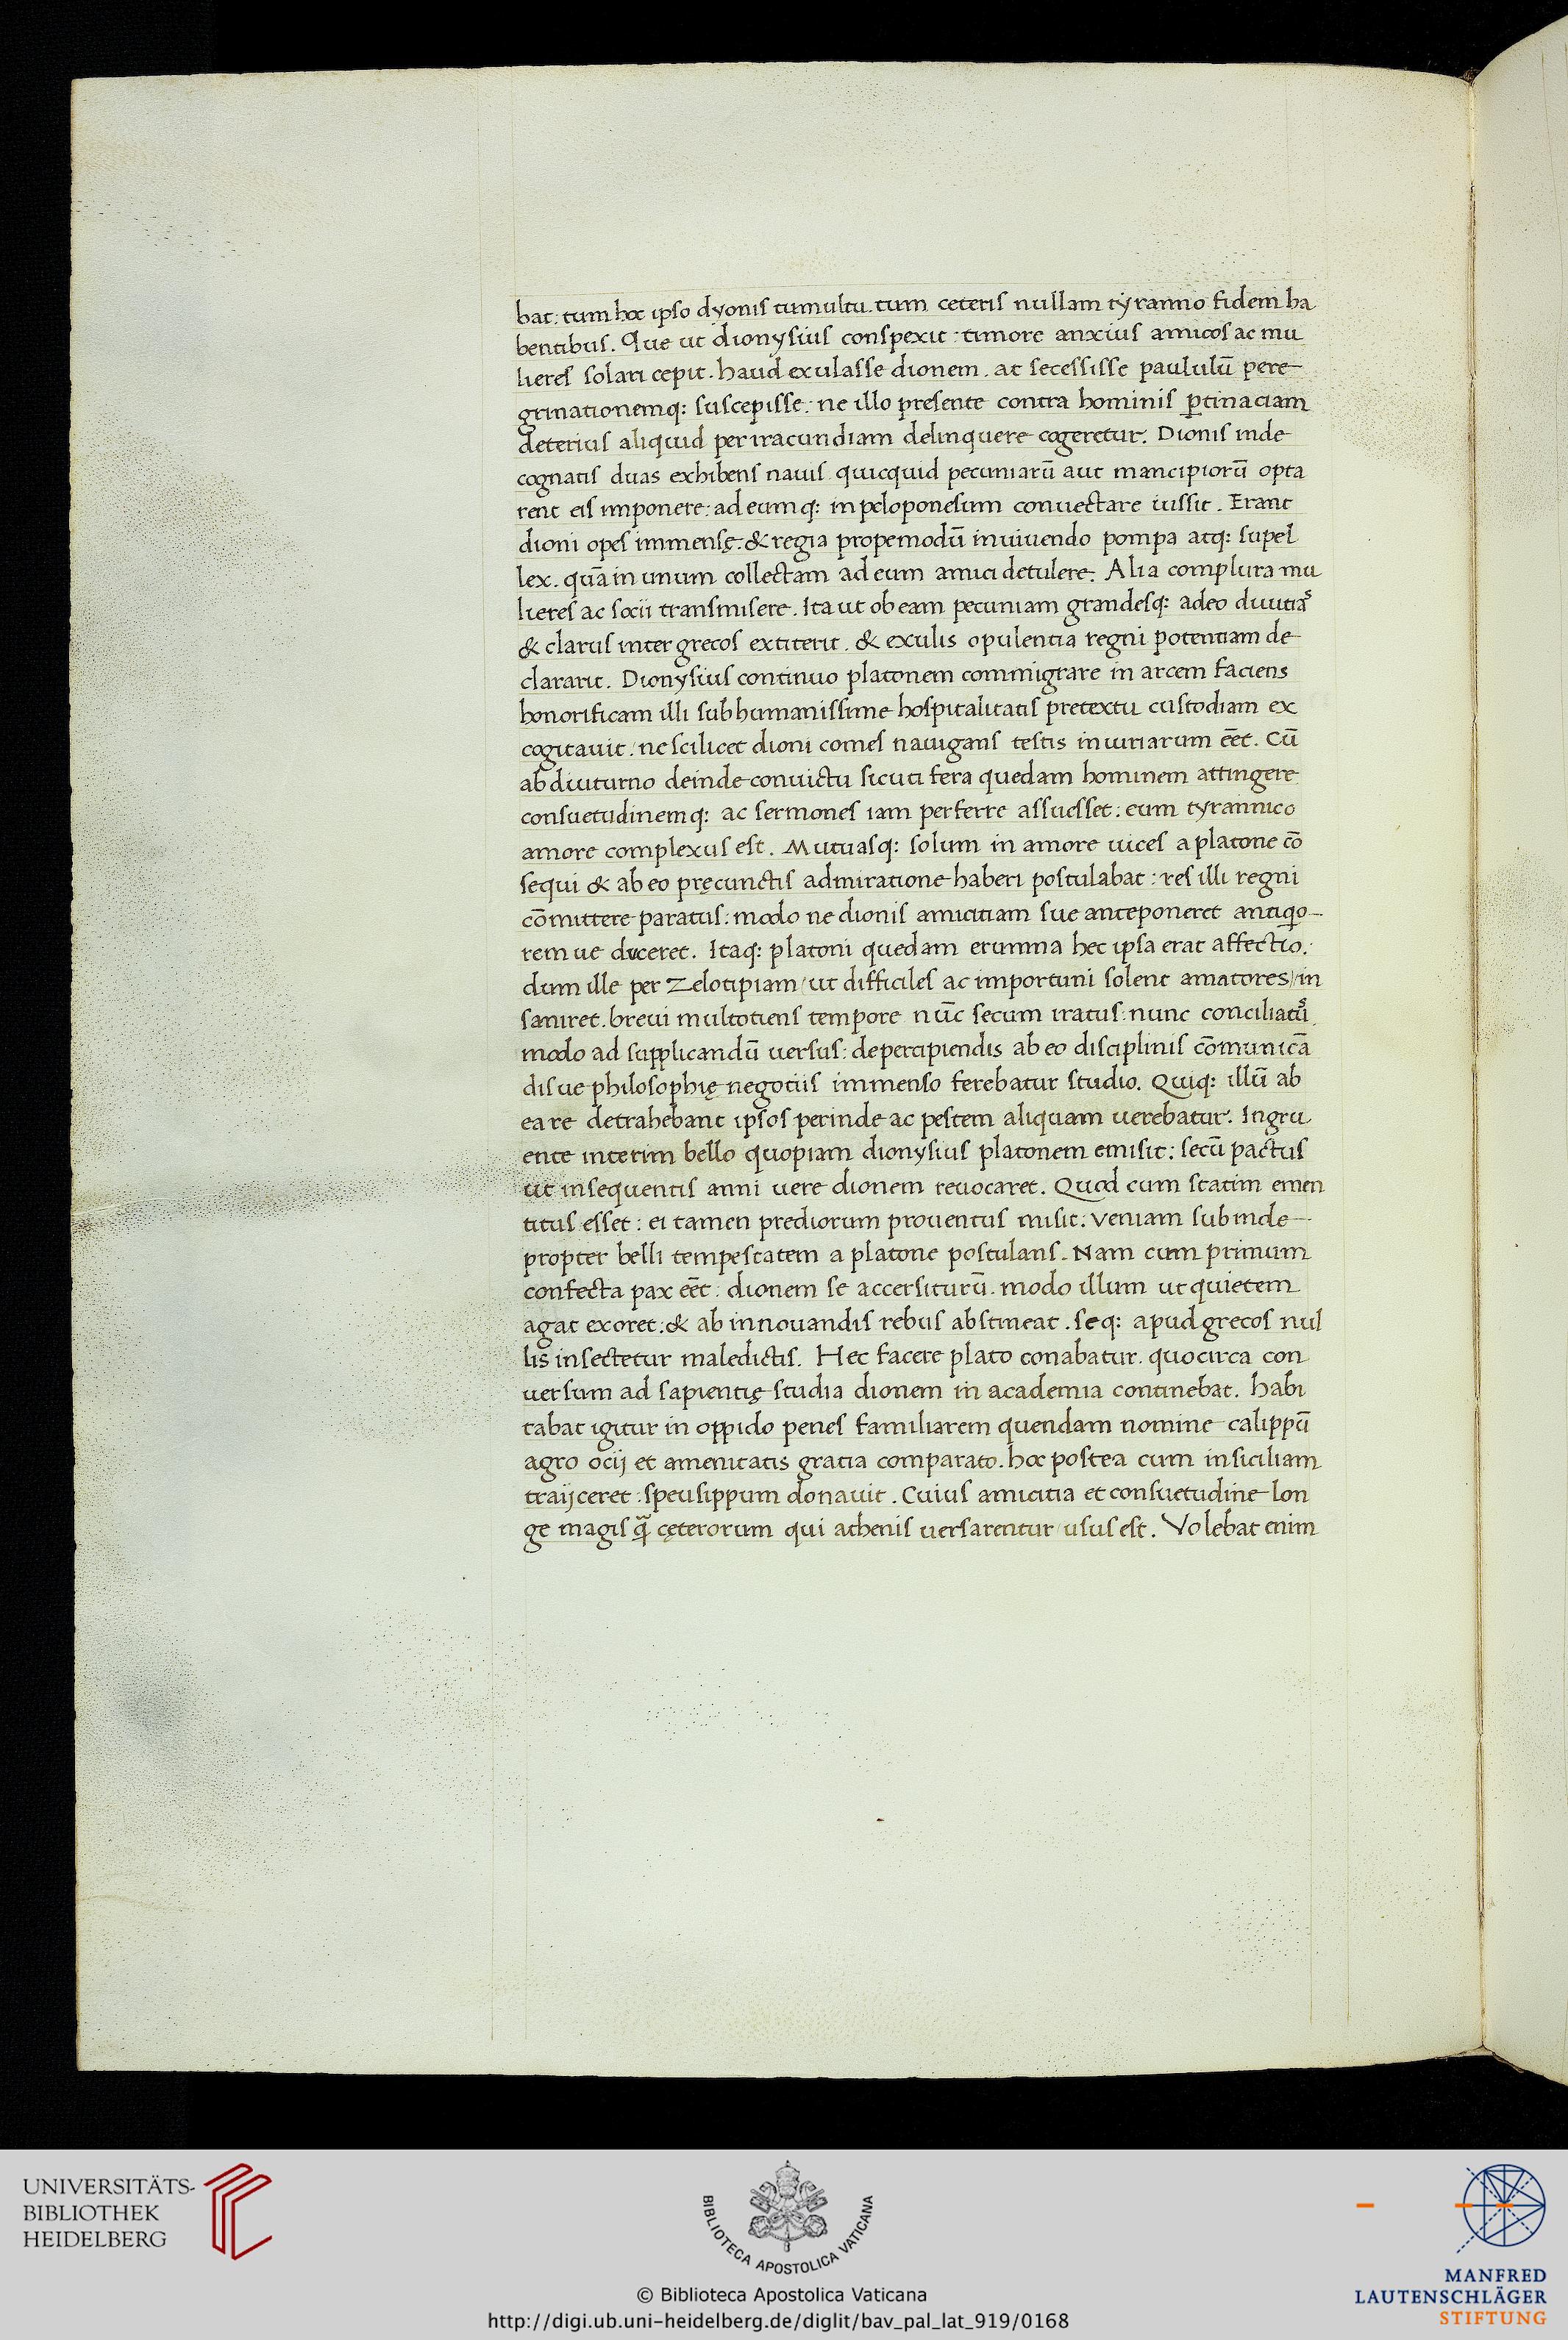 bat: tum hoc ipso dyonis tumultu. tum ceteris nullam tyranno fidem ha
bentibus. Que ut dionysius conspexit: timore anxius amicos ac mu
lieres solari cepit. haud exulasse dionem. at secessisse paululū pere
grinationemq: suscepisse: ne illo presente contra hominis ꝑtinaciam
deterius aliquid per iracundiam delinquere cogeretur. Dionis inde
cognatis duas exhibens nauis quicquid pecuniarū aut mancipiorū opta
rent eis imponere: ad eumq: in peloponesum conuectare iussit. Erant
dioni opes immensę. & regia propemodū in uiuendo pompa atq: supel
lex. quā in unum collectam ad eum amici detulere. Alia complura mu
lieres ac socii transmisere. Ita ut ob eam pecuniam grandesq: adeo diuitias
& clarus inter grecos extiterit. & exulis opulentia regni potentiam de
clararit. Dionysius continuo platonem commigrare in arcem faciens
honorificam illi sub humanissime hospitalitatis pretextu custodiam ex
cogitauit: ne scilicet dioni comes nauigans testis iniuriarum eēt. Cū
ab diuturno deinde conuictu sicuti fera quedam hominem attingere
consuetudinemq: ac sermones iam perferre assuesset: eum tyrannico
amore complexus est. Mutuasq: solum in amore uices a platone cō
sequi & ab eo pręcunctis admiratione haberi postulabat: res illi regni
cōmittere paratus: modo ne dionis amicitiam sue anteponeret antiqo
rem ue duceret. Itaq: platoni quedam erumna hec ipsa erat affectio.
dum ille per Zelotipiam / ut difficiles ac importuni solent amatores / in
saniret. breui multotiens tempore nūc secum iratus: nunc conciliatus
modo ad supplicandū uersus: de percipiendis ab eo disciplinis cōmunicā
dis ue philosophię negotiis immenso ferebatur studio. Quiq: illū ab
ea re detrahebant ipsos perinde ac pestem aliquam uerebatur. Ingru
ente interim bello quopiam dionysius platonem emisit: secū pactus
ut insequentis anni uere dionem reuocaret. Quod cum statim emen
titus esset: ei tamen prediorum prouentus misit: veniam subinde
propter belli tempestatem a platone postulans. Nam cum primum
confecta pax eēt: dionem se accersiturū. modo illum ut quietem
agat exoret: & ab innouandis rebus abstineat. seq: apud grecos nul
lis insectetur maledictis. Hec facere plato conabatur. quocirca con
uersum ad sapientię studia dionem in academia continebat. habi
tabat igitur in oppido penes familiarem quendam nomine calippū
agro ocij et amenitatis gratia comparato. hoc postea cum in siciliam
traijceret: speusippum donauit. Cuius amicitia et consuetudine lon
ge magis q̄ cęterorum qui athenis uersarentur / usus est. Volebat enim
UNIVERSITÄTS-
BIBLIOTHEK
HEIDELBERG
BIBLIOTECA APOSTOLICA VATICANA
© Biblioteca Apostolica Vaticana
http://digi.ub.uni-heidelberg.de/diglit/bav_pal_lat_919/0168
MANFRED
LAUTENSCHLÄGER
STIFTUNG